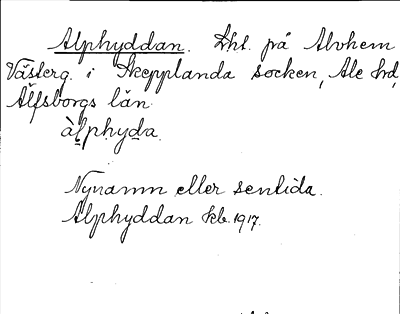 Alphyddan. Lht. på Alvhem
Västerg. i Skepplanda socken, Ale hd,
Älfsborgs län.
àlphyda.
Nynamn eller sentida.
Alphyddan kb. 1917.